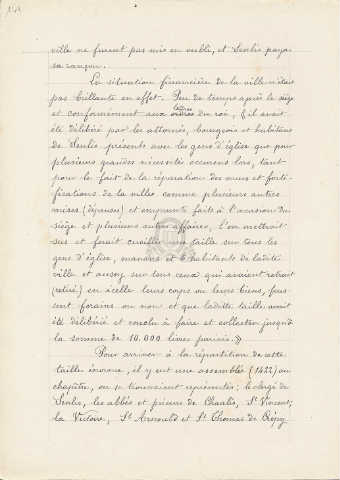 ville ne furent pas mis en oubli, et Senlis paya
sa rançon.
La situation financière de la ville n'était
pas brillante en effet. Peu de temps après le siège
et conformément aux ordres du roi, "il avait
lettres
été délibéré par les attornés, bourgeois et habitans
de Senlis, présents avec les gens d'église que pour
plusieurs grandes nécessités occurrens lors, tant
pour le fait de la réparation des murs et forti-
fications de la ville, comme plusieurs autres
mises (dépenses) et emprunts faits à l'occasion du
siège et plusieurs autres affaires, l'on mettroit
sus et feroit cueillir une taille sur tous les
gens d'église, manans et habitants de ladite
ville et aussy sur tous ceux qui avaient retrait
(retiré) en icelle leurs corps ou leurs biens, fus-
sent forains ou non et que ladite taille avait
été délibérée et conclu à faire et collecter jusqu'à
la somme de 10.000 livres parisis.»
Pour arriver à la répartition de cette
taille énorme, il y eut une assemblée (1422) au
chapitre, où se trouvaient représentés: le clergé de
Senlis, les abbés et prieurs de Chaalis, St Vincent,
la Victoire, St Arnould et St Thomas de Crépy